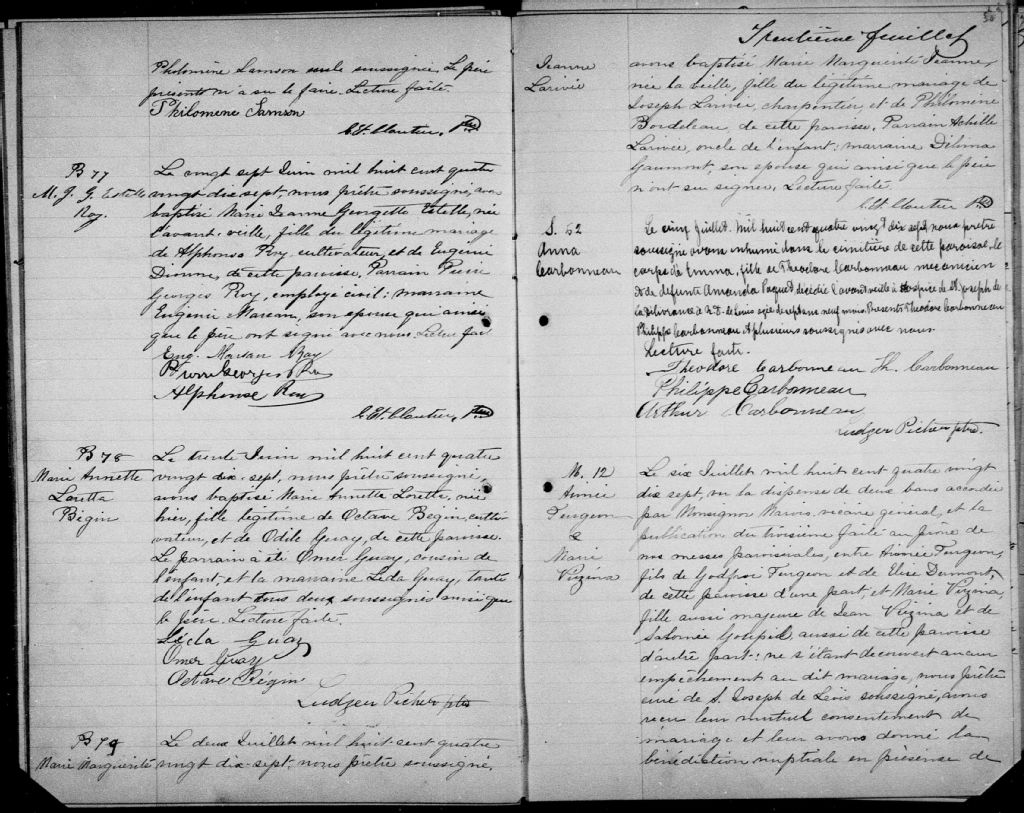 Philomène Samson seule soussignée. Le père
présent n'a su le faire. Lecture faite
Philomene Samson
Ptre
B 77
M. J. G. Estelle
Roy.
Le vingt sept Juin mil huit cent quatre
vingt dix sept, nous prêtre soussigné, avons
baptisé Marie Jeanne Georgette Estelle, née
l'avant-veille, fille du légitime mariage
de Alphonse Roy, cultivateur, et de Eugénie
Dionne, de cette paroisse, Parrain Pierre
Georges Roy, employé civil: marraine
Eugénie Marsan, son épouse qui ainsi
que le père ont signé avec nous. Lecture faite
Eug. Marsan Roy
Pierre Georges Roy
Alphonse Roy
Ptre
B 78
Marie Annette
Loretta
Bégin
Le trente Juin mil huit cent quatre
vingt dix-sept, nous prêtre soussigné,
avons baptisé Marie Annette Lorette, née
hier, fille légitime de Octave Bégin, culti-
vateur, et de Odile Guay, de cette paroisse.
Le parrain a été Omer Guay, cousin de
l'enfant, et la marraine Léda Guay, tante
de l'enfant tous deux soussignés ainsi que
le père. Lecture faite.
Léda Guay
Omer Guay
Octave Bégin
Ludger Picher ptre
B 79
Marie Marguerite
Le deux Juillet mil huit cent quatre
vingt dix-sept, nous prêtre soussigné,
Trentième feuillet
Jeanne
Larivée
avons baptisé Marie Marguerite Jeanne,
née la veille, fille du légitime mariage de
Joseph Larivée, charpentier, et de Philomène
Bordeleau, de cette paroisse. Parrain Achille
Larivée, oncle de l'enfant: marraine Délima
Gaumont, son épouse qui ainsi que le père
n'ont su signer. Lecture faite.
Ptre
S. 62
Anna
Carbonneau
Le cinq Juillet mil huit cent quatre vingt dix sept nous prêtre
soussigné avons inhumé dans le cimitière de cette paroisse, le
corps de Emma, fille de Théodore Carbonneau mecanicien
et de defunte Amanda Paquet décédée l'avant veille à Hospice de St. Joseph de
la Délivrance à âgée de sept ans neuf mois. Presents Théodore Carbonneau
Philippe Carbonneau & plusieurs soussignés avec nous.
Lecture faite.
Theodore Carbonneau Th. Carbonneau
Philippe Carbonneau
Arthur Carbonneau
Ludger Picher ptre.
M. 12
Aimée
Turgeon
&
Marie
Vézina
Le six Juillet mil huit cent quatre vingt
dix sept, vu la dispense de deux bans accordée
par Monsignor Marois, vicaire général, et la
publication du troisième faite au prône de
nos messes paroissiales, entre Aimée Turgeon,
fils de Godfroi Turgeon et de Elise Dumont,
de cette paroisse d'une part, et Marie Vézina,
fille aussi majeure de Jean Vézina et de
Salomée Goupil, aussi de cette paroisse
d'autre part: ne s'étant découvert aucun
empêchement au dit mariage, nous prêtre
curé de S. Joseph de Lévis soussigné, avons
reçu leur mutuel consentement de
mariage et leur avons donné la
bénédiction nuptiale en présense de